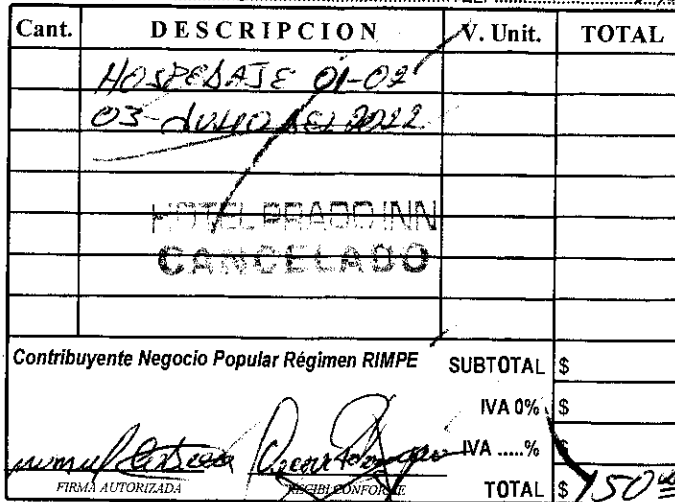 Cant. DESCRIPCION V. Unit. TOTAL
HOSPEDAJE 01-02
03-JULIO DEL 2022
HOTEL PRADO INN
CANCELADO
Contribuyente Negocio Popular Régimen RIMPE SUBTOTAL $
IVA 0% $
IVA .....% $
FIRMA AUTORIZADA RECIBI CONFORME TOTAL $ 150